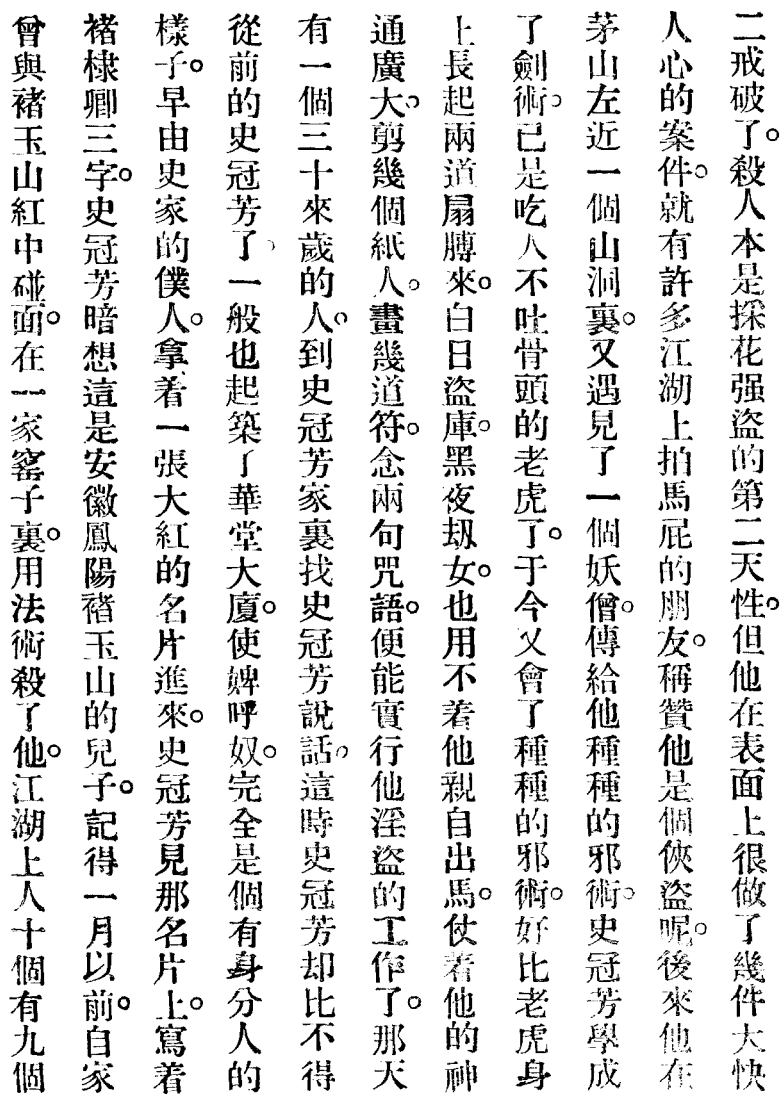 二戒破了。殺人本是採花强盜的第二天性。但他在表面上很做了幾件大快
人心的案件。就有許多江湖上拍馬屁的朋友。稱贊他是個俠盜呢。後來他在
茅山左近一個山洞裏。又遇見了一個妖僧。傳給他種種的邪術。史冠芳學成
了劍術。已是吃人不吐骨頭的老虎了。于今又會了種種的邪術。好比老虎身
上長起兩道扇膊來。白日盜庫。黑夜刼女。也用不着他親自出馬。仗着他的神
通廣大。剪幾個紙人。畫幾道符。念兩句咒語。便能實行他淫盜的工作了。那天
有一個三十來歲的人。到史冠芳家裏找史冠芳說話。這時史冠芳却比不得
從前的史冠芳了。一般也起築了華堂大廈。使婢呼奴。完全是個有身分人的
樣子。早由史家的僕人。拿着一張大紅的名片進來。史冠芳見那名片上。寫着
褚棣卿三字。史冠芳暗想這是安徽鳳陽褚玉山的兒子。記得一月以前。自家
曾與褚玉山紅中碰面。在一家窰子裏。用法術殺了他。江湖上人十個有九個